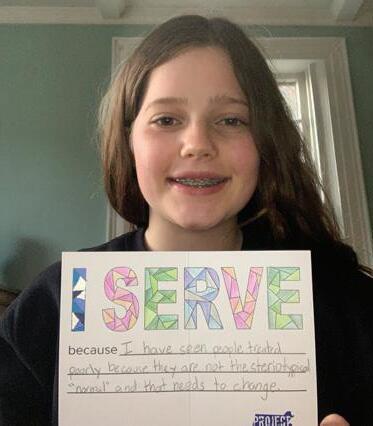 I SERVE
because I have seen people treated
poorly because they are not the steriotypical
"normal" and that needs to change.
PROJECT